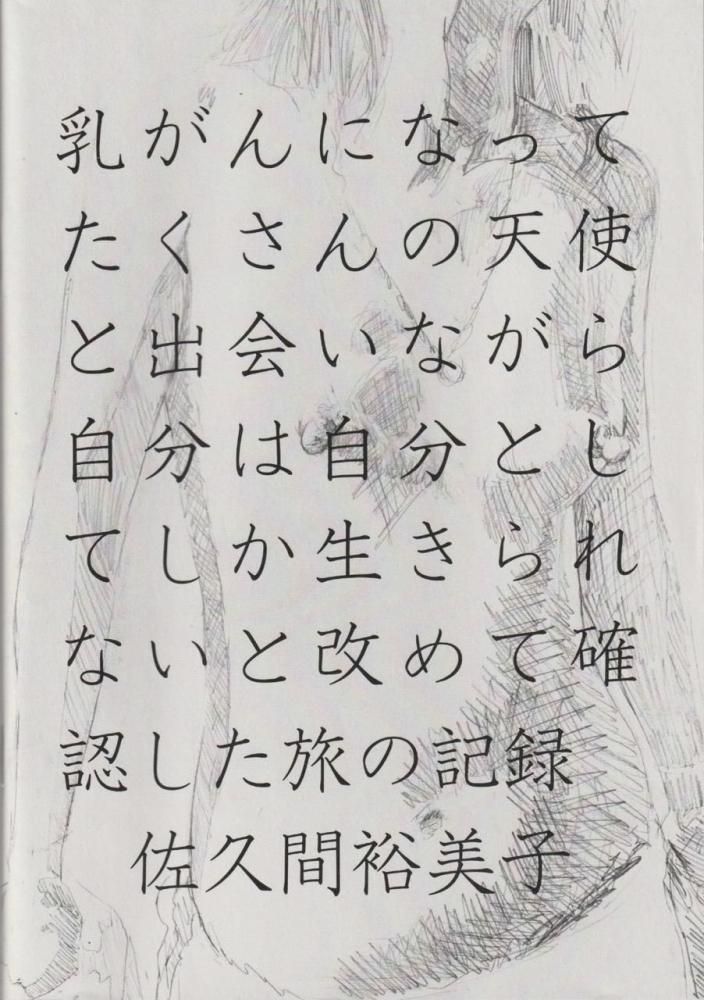 乳がんになって
たくさんの天使
と出会いながら
自分は自分とし
てしか生きられ
ないと改めて確
認した旅の記録
佐久間裕美子